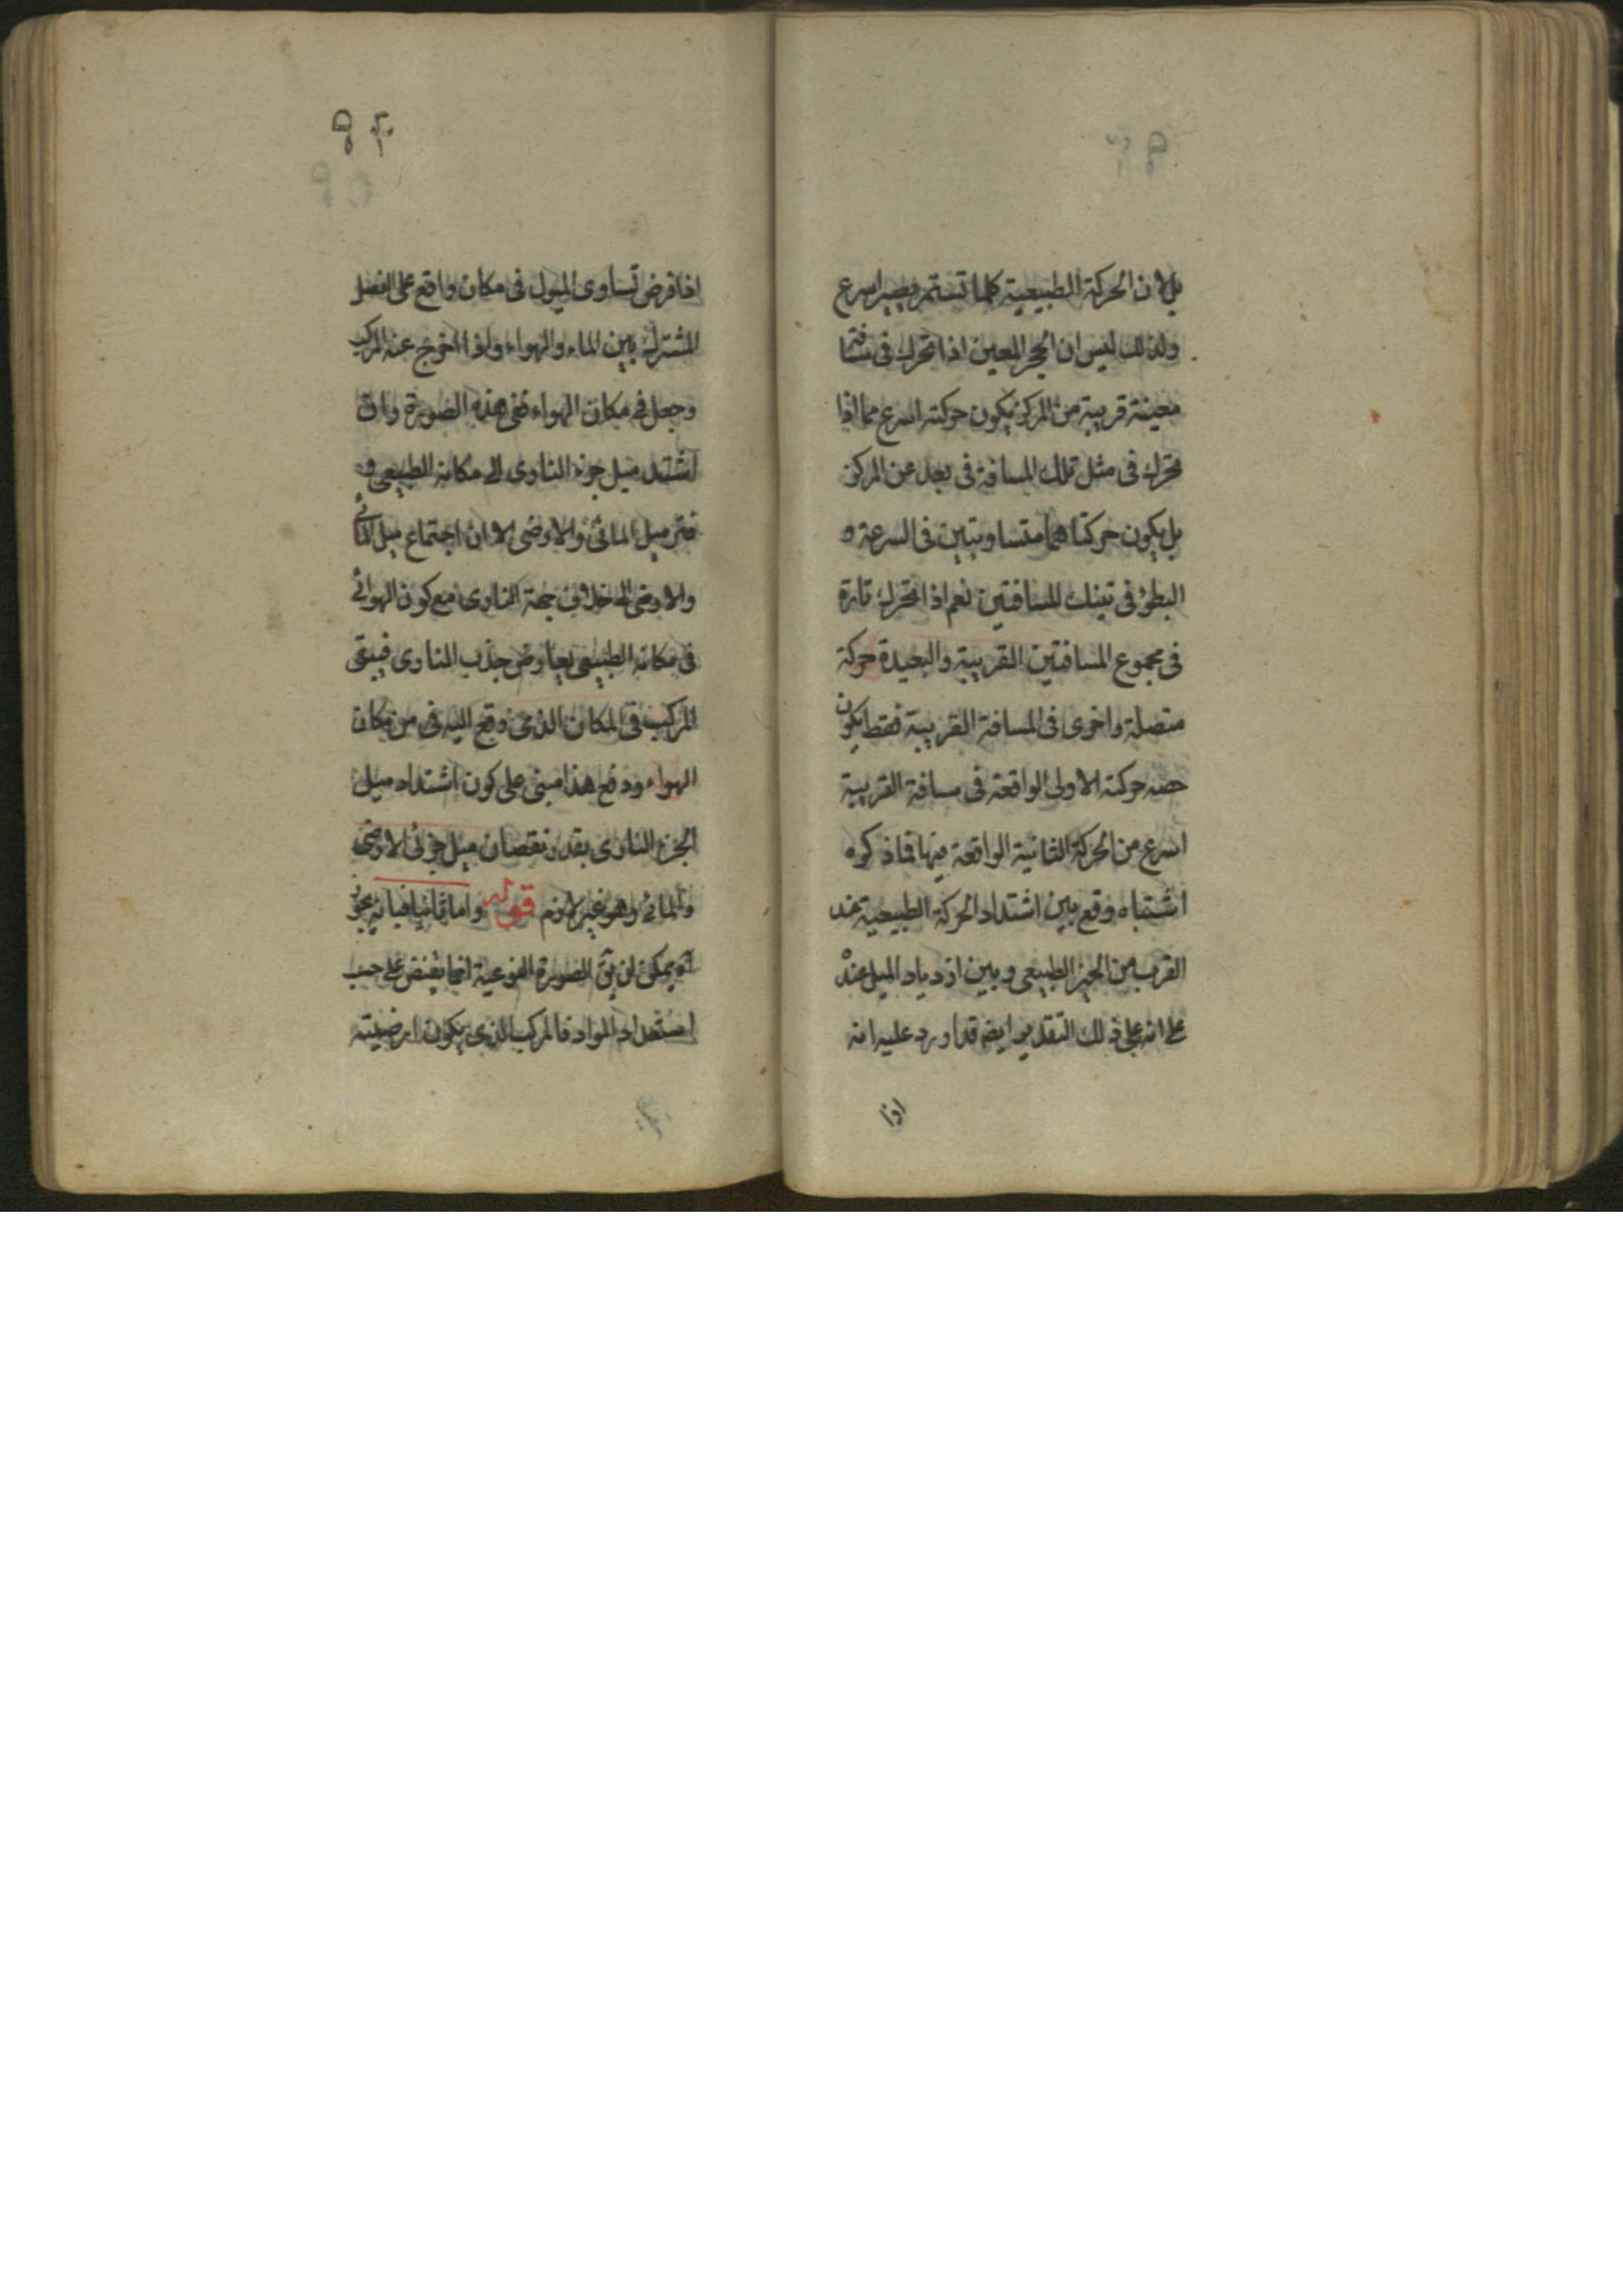 بل لان الحركة الطبيعية كلما تستمر يصير اسرع
ولذلك ليس ان الحجر المعين اذا تحرك فى مسافة
معينة قريبة من المركز يكون حركته اسرع مما اذا
تحرك فى مثل تلك المسافة فى بعد عن المركز
بل يكون حركتاهما متساويتين فى السرعة و
البطؤ فى تينك المسافتين نعم اذا تحرك تارة
فى مجموع المسافتين القريبة والبعيدة حركة
متصلة واخرى فى المسافة القريبة فقط يكون
حصه حركته الاولى الواقعة فى مسافة القريبة
اسرع من الحركة الثانية الواقعة فيها فما ذكره
اشتباه وقع بين اشتداد الحركة الطبيعية عند
القرب من الحيز الطبيعى وبين ازدياد الميل عنده
على انه على ذلك التقدير ايضه قد اورد عليه انه
اذا
اذا فرض تساوى الميول فى مكان واقع على الفصل
المشترك بين الماء والهواء واذا اخرج عنه المركب
وجعل فى مكان الهواء ففى هذه الصورة وان
اشتد ميل جزء النارى الى مكانه الطبيعى و
فتر ميل المائى والارضى الا ان اجتماع ميل المائى
والارضى الى خلاف جهة النارى مع كون الهوائى
فى مكانه الطبيعى يعاوض جذب النارى فيبقى
المركب فى المكان الذى وقع اليه فى من مكان
الهواء ودفع هذا مبنى على كون اشتداد ميل
الجزء النارى بقدر نقصان ميل جزئى الارضى
والمائى وهو غير لازم قوله واما ثانيا فبانه يجوز
آه يمكن ان يق الصورة النوعية انما يفيض على حسب
استعداد المواد فالمركب الذى يكون ارضيته